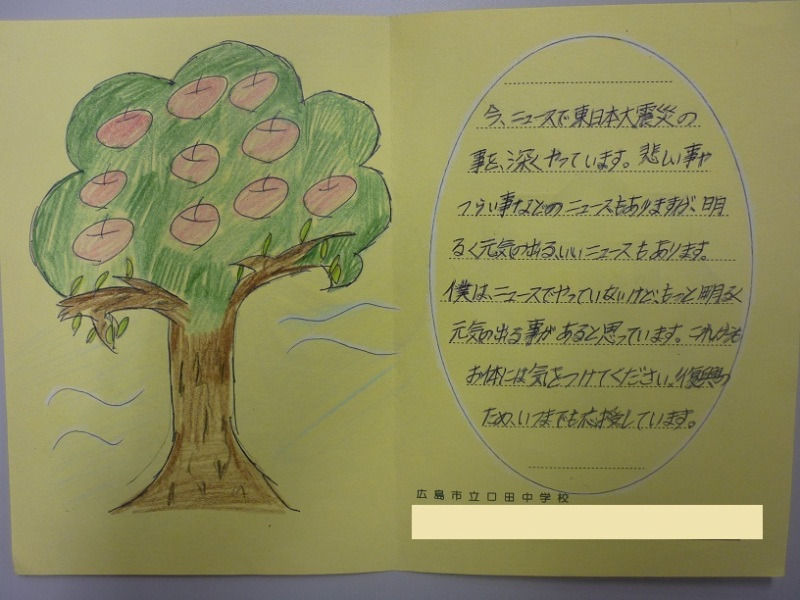 今、ニュースで東日本大震災の
事を、深くやっています。悲しい事や
つらい事などのニュースもありますが、明
るく元気の出る、いいニュースもあります。
僕は、ニュースでやっていないけど、もっと明るく
元気の出る事があると思っています。これからも
お体には気をつけてください。復興の
ため、いつまでも応援しています。
広島市立口田中学校